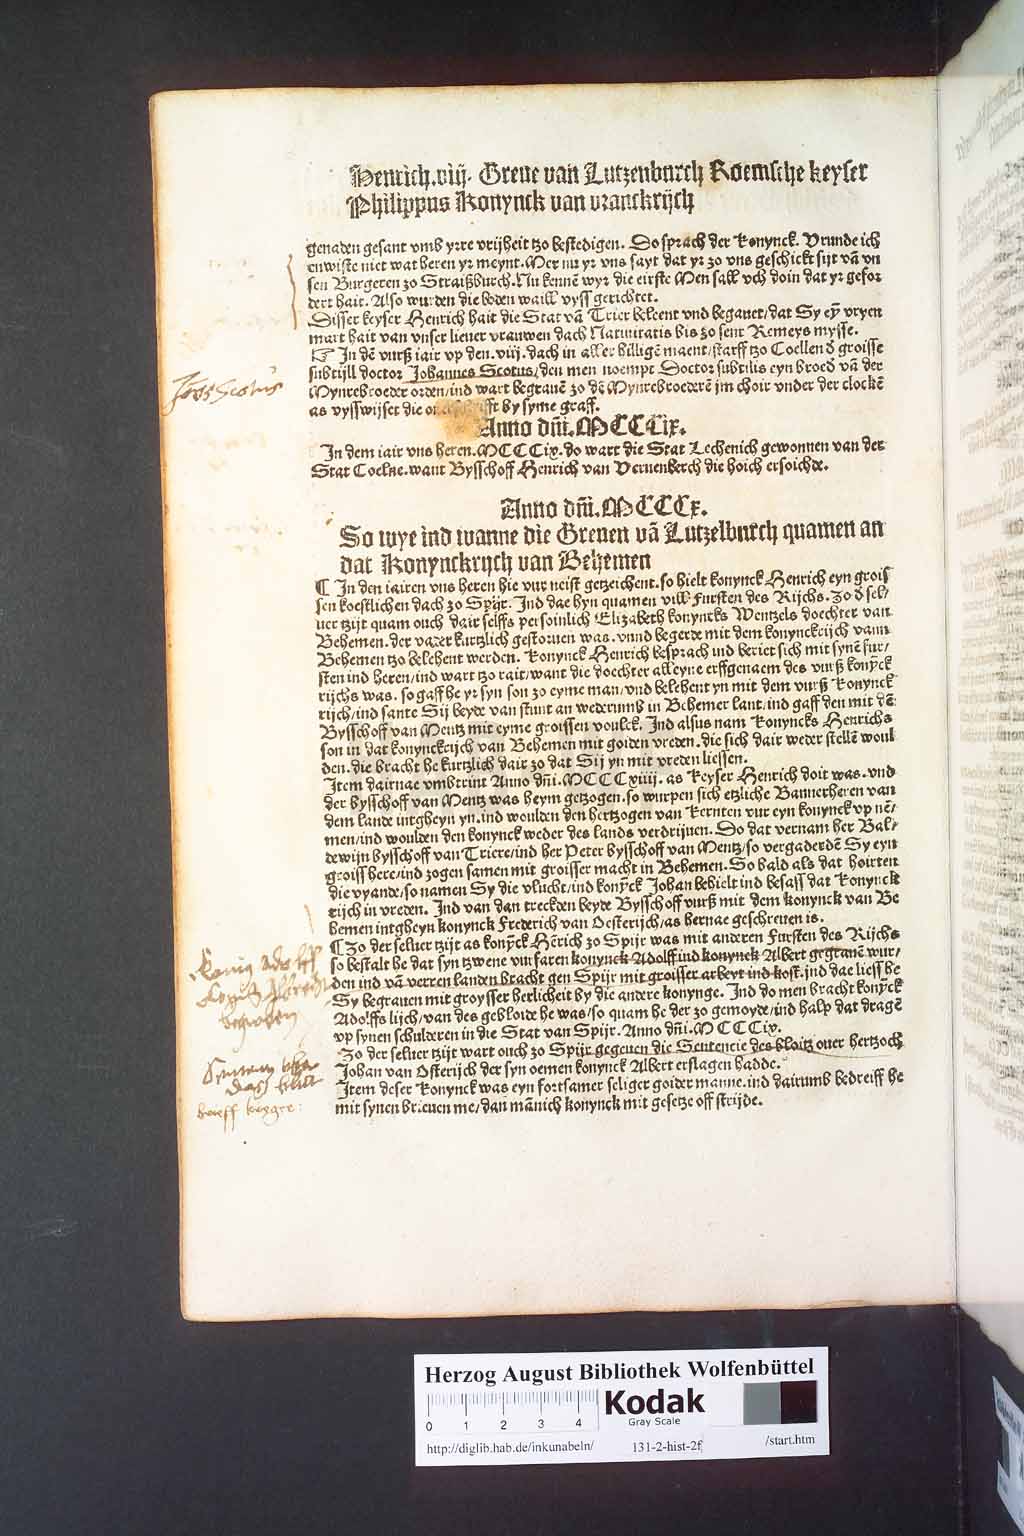 Henrich.viij. Greue van Lutzenburch Roemsche keyser
Philippus Konynck van vranckrijch
genaden gesant vmb yrre vrijheit tzo bestedigen. Do sprach der Konynck. Vrunde ich
enwiste niet wat heren yr meynt. Mer nu yr vns sayt dat yr zo vns geschickt sijt vā vn
sen Burgeren zo Straißburch. Nu kennē wyr die eirste Men sall vch doin dat yr gefor
dert hait. Also wurden die boden waill vyss gerichtet.
Disser keyser Henrich hait die Stat vā Trier beleent vnd begauet/dat Sy eȳ vryen
mart hait van vnser lieuer vrauwen dach Natiuitatis bis zo sent Remeys mysse.
☞ In dē vurß iair vp den. viij. dach in aller hilligē maent/starff tzo Coellen d̄ groisse
subtijll doctor Johannes Scotus/den men noempt Doctor subtilis eyn broed̄ vā der
Mynrebroeder orden/ind wart begrauē zo dē Mynrebroederē jm choir vnder der clockē
as vysswijset die by syme graff.
Anno dn̄i. MCCCix.
In dem iair vns heren. MCCCix. do wart die Stat Lechenich gewonnen van der
Stat Coelne. want Bysschoff Henrich van Vernenberch die hoich ersoichde.
Anno dn̄i. MCCCx.
So wye ind wanne die Greuen vā Lutzelburch quamen an
dat Konynckrijch van Behemen
¶ In den iairen vns heren hie vur neist getzeichent. so hielt konynck Henrich eyn grois
sen koestlichen dach zo Spijr. Ind dae hyn quamen vill Fursten des Rijchs. Zo d̄ sel/
uer tzijt quam ouch dair selffs persoinlich Elizabeth konyncks Wentzels doechter van
Behemen. der vader kurtzlich gestoruen was. vnnd begerde mit dem konynckrijch vann
Behemen tzo belehent werden. Konynck Henrich besprach ind beriet sich mit synē fur/
sten ind heren/ind wart tzo rait/want die doechter alleyne erffgenaem des vurß konȳck
rijchs was. so gaff he yr syn son zo eyme man/vnd belehent yn mit dem vurß Konynck
rijch/ind sante Sij beyde van stunt an wederumb in Behemer lant/ind gaff den mit dē
Bysschoff van Mentz mit eyme groissen voulck. Ind alsus nam Konyncks Henrichs
son in dat konynckrijch van Behemen mit goiden vreden. die sich dair weder stellē woul
den. die bracht he kurtzlich dair zo dat Sij yn mit vreden liessen.
Item dairnae vmbtrint Anno dn̄i. MCCCxiiij. as Keyser Henrich doit was. vnd
der bysschoff van Mentz was heym getzogen. so wurpen sich etzliche Bannerheren van
dem lande intgheyn yn. ind woulden den hertzogen van Kernten vur eyn konynck vp nē/
men/ind woulden den konynck weder des lands verdrijuen. Do dat vernam her Bal/
dewijn bysschoff van Triere/ind her Peter bysschoff van Mentz/so vergaderdē Sy eyn
groiss here/ind zogen samen mit groisser macht in Behemen. So bald als dat hoirten
die vyande/so namen Sy die vlucht/ind konȳck Johan behielt ind besass dat Konynck
rijch in vreden. Ind van dan treckden beyde Bysschoff vurß mit dem konynck van Be
hemen intgheyn konynck Frederich van Oesterijch/as hernae geschreuen is.
¶ Zo der seluer tzijt as konȳck Hērich zo Spijr was mit anderen Fursten des Rijchs
so bestalt he dat syn tzwene vurfaren konynck Adolff ind konynck Albert gegrauē wur/
den ind vā verren landen bracht gen Spijr mit groisser arbeyt ind kost. jnd dae liess he
Sy begrauen mit groysser herlicheit by die andere konynge. Ind do men bracht konȳck
Adolffs lijch/van des gebloide he was/so quam he der zo gemoyde/ind halp dat dragē
vp synen schulderen in die Stat van Spijr. Anno dn̄i. MCCCix.
Zo der seluer tzijt wart ouch zo Spijr gegeuen die Sentencie des bloitz ouer hertzoch
Johan van Osterijch der syn oemen konynck Albert erslagen hadde.
Item deser Konynck was eyn fortsamer seliger goider manne. ind dairumb bedreiff he
mit synen brieuen me/dan mānich konynck mit gesetze off strijde.
Herzog August Bibliothek Wolfenbüttel
0 1 2 3 4
Kodak
Gray Scale
http://diglib.hab.de/inkunabeln/ 131-2-hist-2f /start.htm